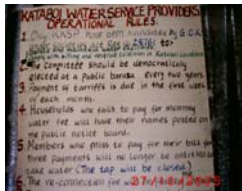 KATABOI WATER SERVICE PROVIDERS
OPERATIONAL RULES.
1. Only KASP have been mandated by G.O.K
to:
The Committee should be democratically
elected at a public baraza every two years.
3. Payment of tarrifs is due in the first week
of each month.
4. Households who fail to pay for monthly
water fee will have their names posted on
the public notice board.
5. Members who miss to pay for their bill for
three payments will no longer be entitled to
take water (The tap will be closed)
6. The re-connection fee